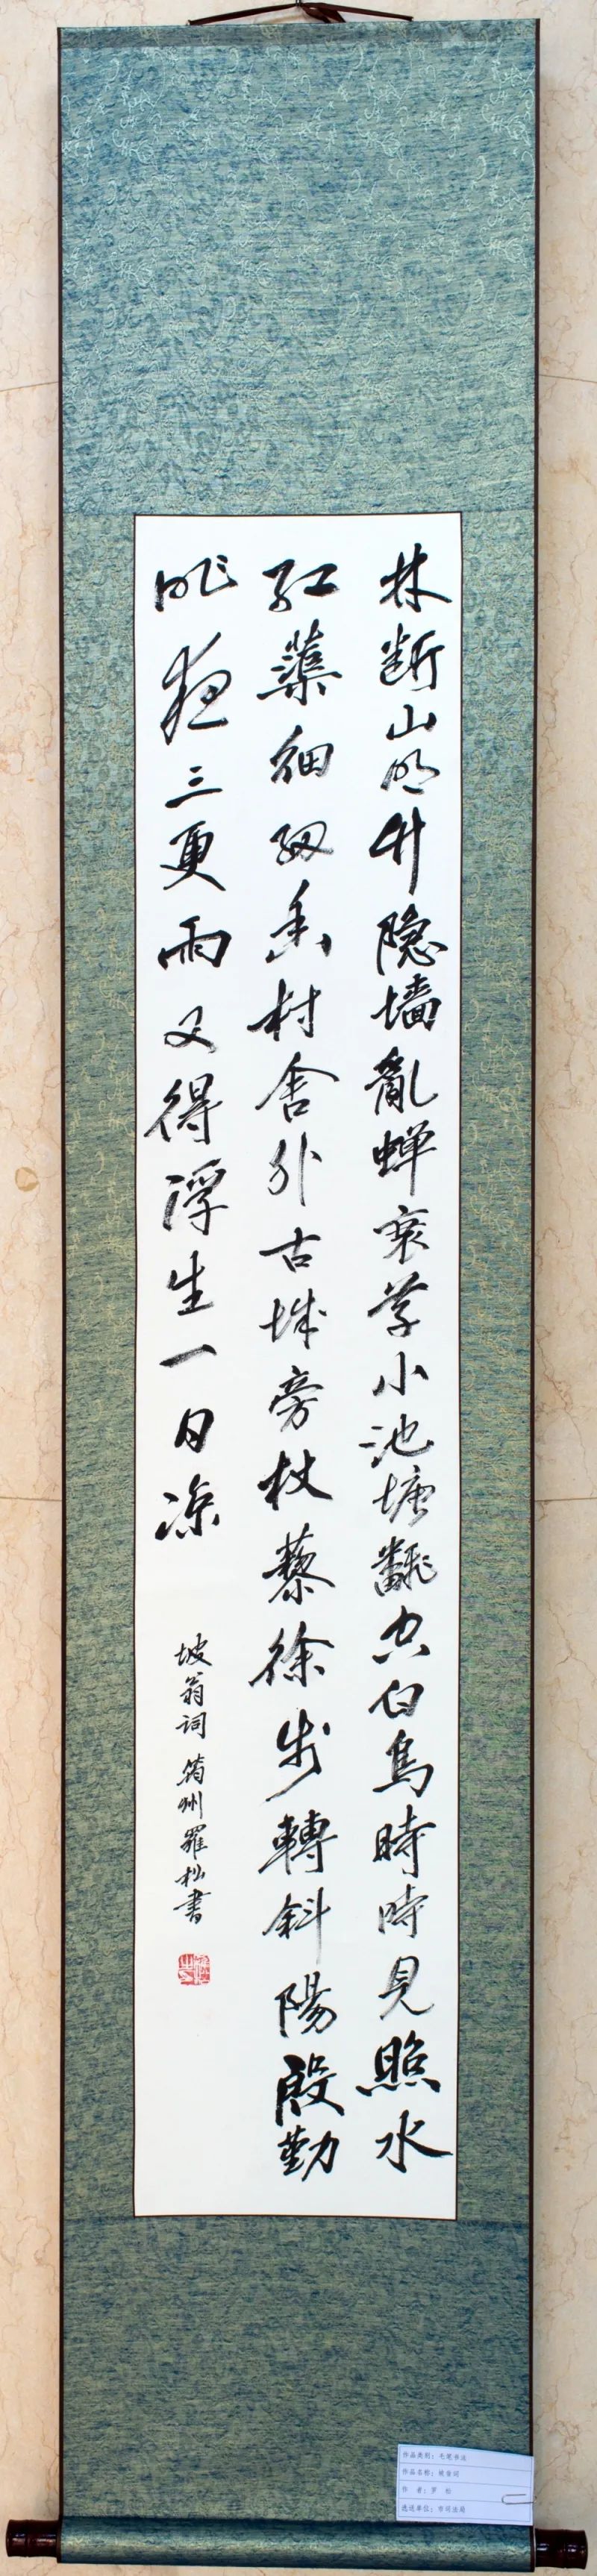 林断山明竹隐墙亂蝉衰草小池塘翻空白鳥時時見照水
红蕖细细香村舍外古城旁杖藜徐步轉斜陽殷勤
昨夜三更雨又得浮生一日凉
坡翁词 筠州羅松書
作品类别：毛笔书法
作品名称：坡翁词
作 者：罗 松
选送单位：市司法局